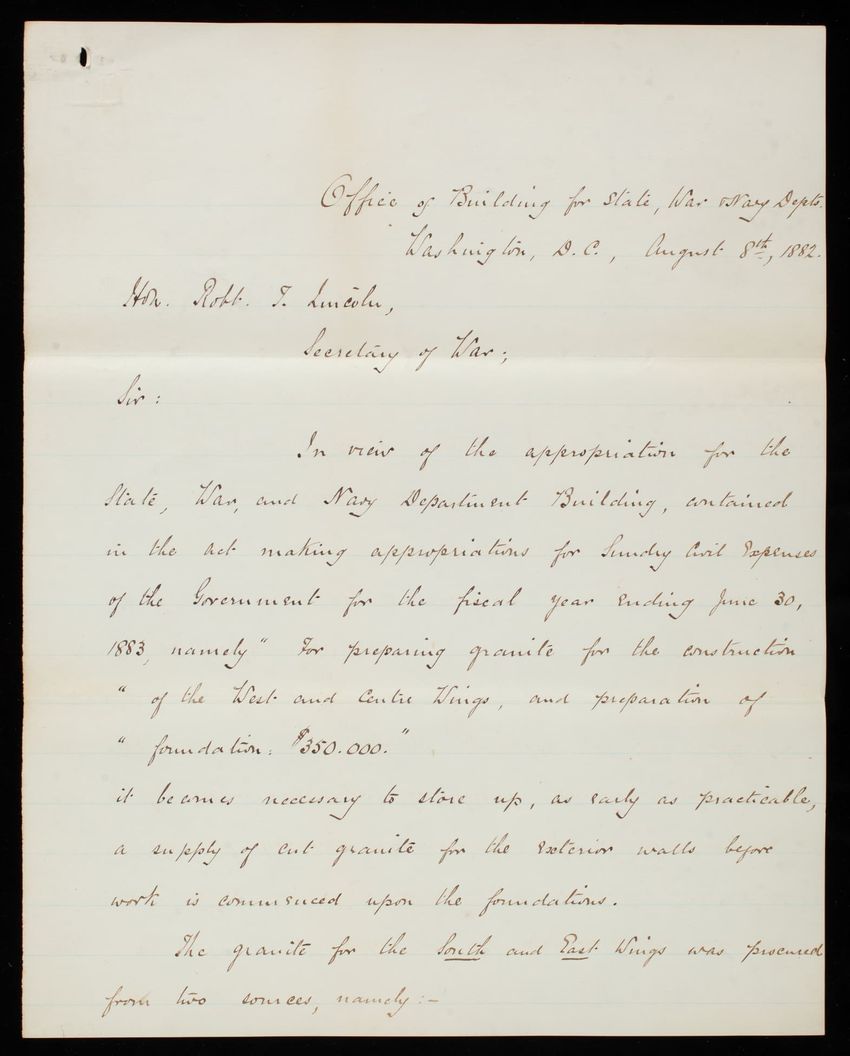 Office of Building for State, War & Navy Depts.
Washington, D.C., August 8th, 1882.
Hon. Robt. T. Lincoln,
Secretary of War;
Sir:
In view of the appropriation for the
State, War, and Navy Department Building, contained
in the act making appropriations for Sundry Civil Expenses
of the Government for the fiscal year ending June 30,
1883, namely " For preparing granite for the construction
" of the West and Centre Wings, and preparation of
" foundation: $350.000."
it becomes necessary to store up, as early as practicable,
a supply of cut granite for the exterior walls before
work is commenced upon the foundations.
The granite for the South and East Wings was procured
from two sources, namely:-